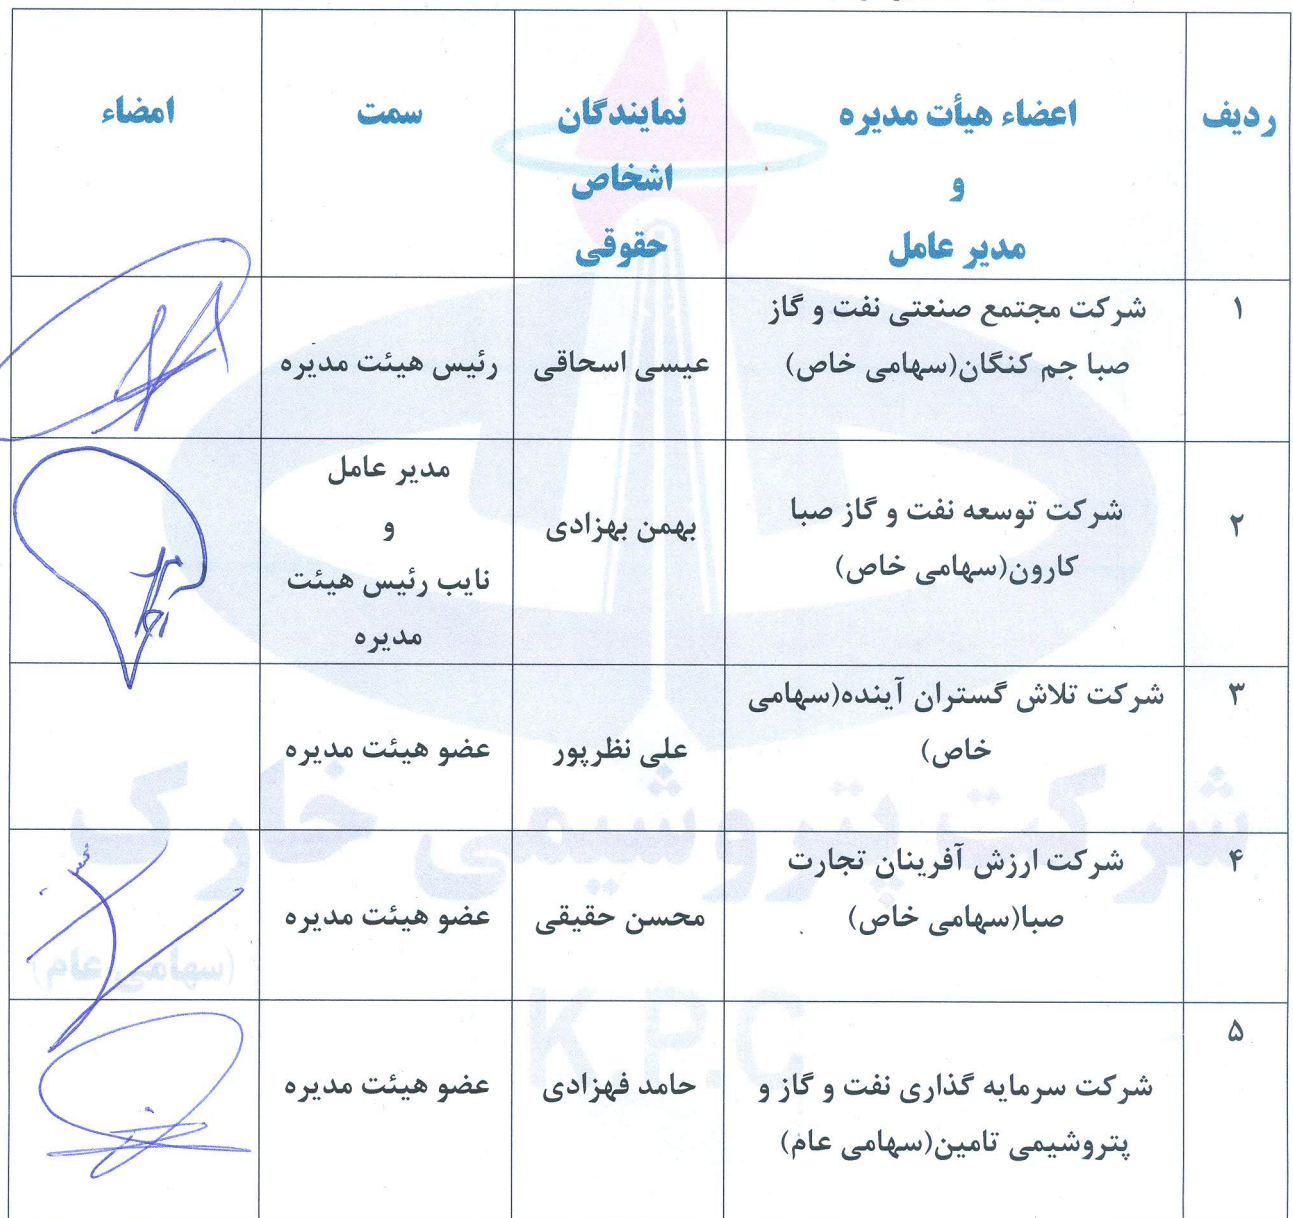 ردیف
اعضاء هیأت مدیره
و
مدیر عامل
نمایندگان
اشخاص
حقوقی
سمت
امضاء
۱
شرکت مجتمع صنعتی نفت و گاز
صبا جم کنگان(سهامی خاص)
عیسی اسحاقی
رئیس هیئت مدیره
۲
شرکت توسعه نفت و گاز صبا
کارون(سهامی خاص)
بهمن بهزادی
مدیر عامل
و
نایب رئیس هیئت
مدیره
۳
شرکت تلاش گستران آینده(سهامی
خاص)
علی نظرپور
عضو هیئت مدیره
۴
شرکت ارزش آفرینان تجارت
صبا(سهامی خاص)
محسن حقیقی
عضو هیئت مدیره
۵
شرکت سرمایه گذاری نفت و گاز و
پتروشیمی تامین(سهامی عام)
حامد فهزادی
عضو هیئت مدیره
شرکت پتروشیمی خارک
(سهامی عام)
K.P.C